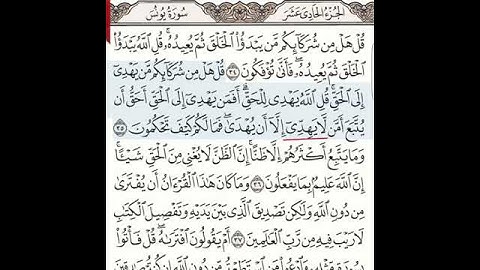 الجُزْءُ الحَادِي عَشَرَ سُورَةُ يُونُسَ
قُلْ هَلْ مِن شُرَكَآئِكُم مَّن يَبْدَؤُا۟ الْخَلْقَ ثُمَّ يُعِيدُهُۥ ۚ قُلِ اللَّهُ يَبْدَؤُا۟
الْخَلْقَ ثُمَّ يُعِيدُهُۥ ۖ فَأَنَّىٰ تُؤْفَكُونَ ٣٤ قُلْ هَلْ مِن شُرَكَآئِكُم مَّن يَهْدِىٓ
إِلَى الْحَقِّ ۚ قُلِ اللَّهُ يَهْدِى لِلْحَقِّ ۗ أَفَمَن يَهْدِىٓ إِلَى الْحَقِّ أَحَقُّ أَن
يُتَّبَعَ أَمَّن لَّا يَهِدِّىٓ إِلَّآ أَن يُهْدَىٰ ۖ فَمَا لَكُمْ كَيْفَ تَحْكُمُونَ ٣٥
وَمَا يَتَّبِعُ أَكْثَرُهُمْ إِلَّا ظَنًّا ۚ إِنَّ الظَّنَّ لَا يُغْنِى مِنَ الْحَقِّ شَيْـًٔا ۚ
إِنَّ اللَّهَ عَلِيمٌۢ بِمَا يَفْعَلُونَ ٣٦ وَمَا كَانَ هَٰذَا الْقُرْءَانُ أَن يُفْتَرَىٰ
مِن دُونِ اللَّهِ وَلَٰكِن تَصْدِيقَ الَّذِى بَيْنَ يَدَيْهِ وَتَفْصِيلَ الْكِتَٰبِ
لَا رَيْبَ فِيهِ مِن رَّبِّ الْعَٰلَمِينَ ٣٧ أَمْ يَقُولُونَ افْتَرَىٰهُ ۖ قُلْ فَأْتُوا۟
بِسُورَةٍ مِّثْلِهِۦ وَادْعُوا۟ مَنِ اسْتَطَعْتُم مِّن دُونِ اللَّهِ إِن كُنتُمْ صَٰدِقِينَ